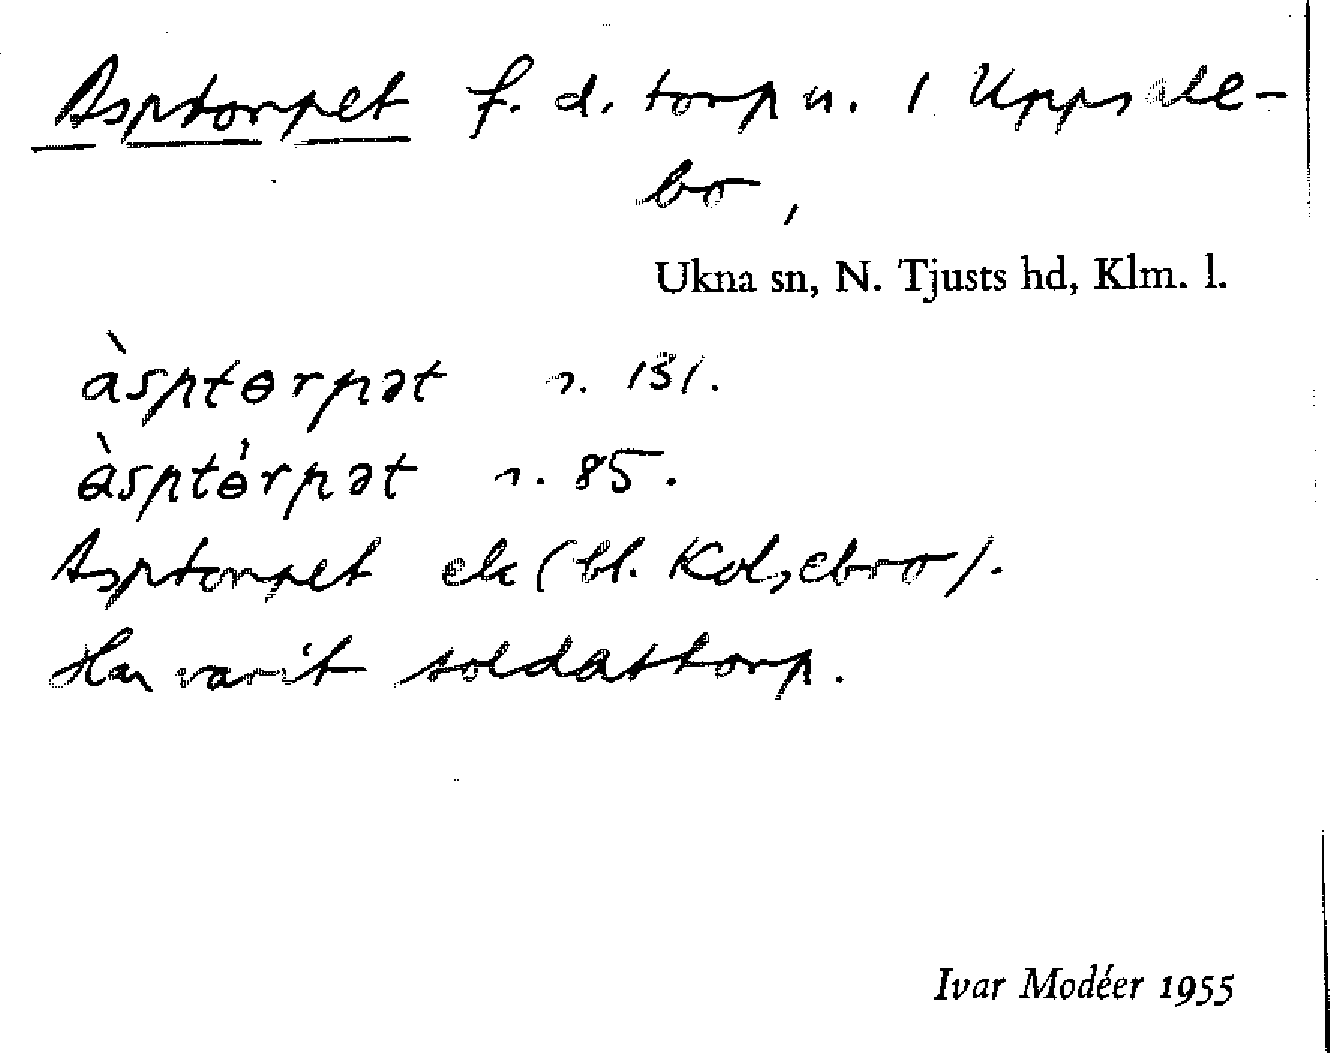 Asptorpet f. d. torp u. 1 Uppsale-
bo,
Ukna sn, N. Tjusts hd, Klm. l.
àsptɵrpət s. 131.
àsptɵ́rpət s. 85.
Asptorpet ek (bl. Kolsebro).
Har varit soldattorp.
Ivar Modéer 1955